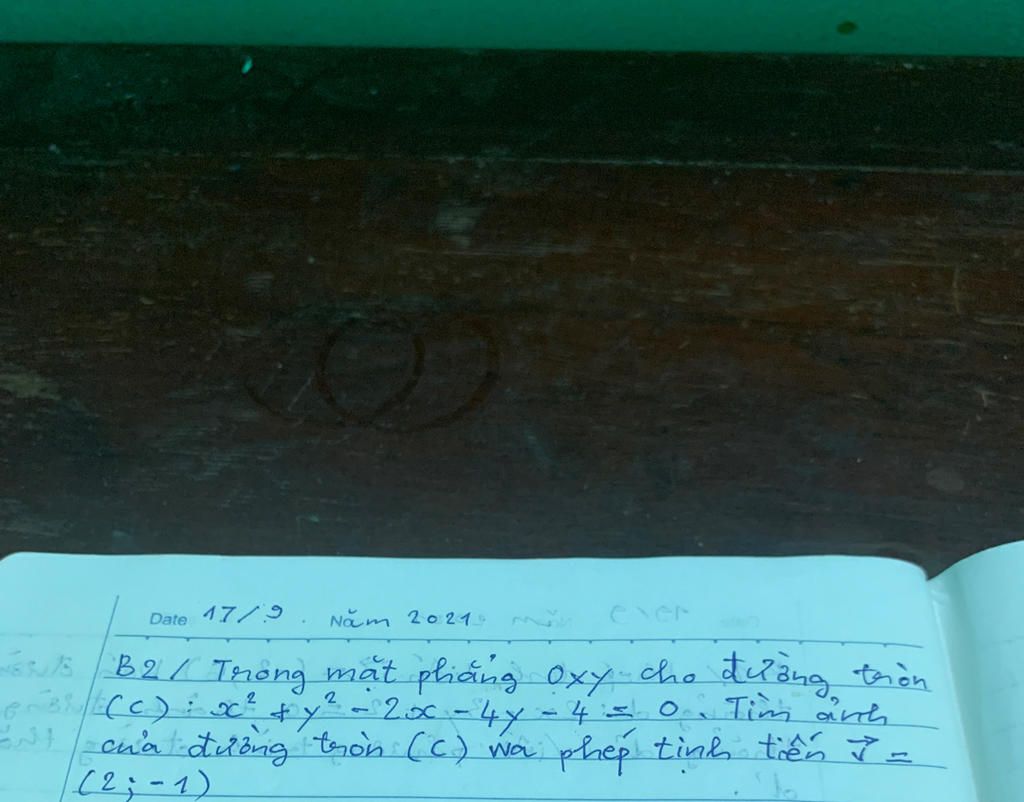 Date 17/9. Năm 2021
B2/ Trong mặt phẳng Oxy cho đường tròn
(C): x² + y² - 2x - 4y - 4 = 0. Tìm ảnh
của đường tròn (C) wa phép tịnh tiến v⃗ =
(2; -1)